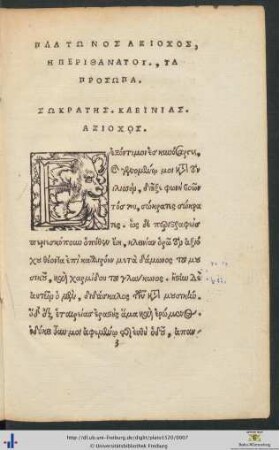 ΠΛΑΤΩΝΟΣ ΑΞΙΟΧΟΣ,
Η ΠΕΡΙ ΘΑΝΑΤΟΥ., ΤΑ
ΠΡΟΣΩΠΑ.
ΣΩΚΡΑΤΗΣ. ΚΛΕΙΝΙΑΣ.
ΑΞΙΟΧΟΣ.
Ἐξιόντι μοι ἐς κυνόσαργες,
καὶ γενομένῳ μοι κατὰ τὸν
ἰλισσὸν, διῇξε φωνὴ βοῶν
τός του, σώκρατες σώκρα
τες. ὡς δὲ ἐπιστραφεὶς
περιεσκόπουν ὁπόθεν εἴη, κλεινίαν ὁρῶ τὸν ἀξιό
χου θέοντα ἐπὶ καλλιρόην μετὰ δάμωνος τοῦ μου
σικοῦ, καὶ χαρμίδου τοῦ γλαύκωνος. ἤστην δὲ
αὐτοῖν ὁ μὲν, διδάσκαλος τῶν κατὰ μουσικὴν.
ὁ δὲ ἐξ ἑταιρείας ἐραστὴς ἅμα καὶ ἐρώμενος.
ἐδόκει οὖν μοι ἀφεμένῳ τῆς εὐθὺ ὁδοῦ, ἀπαν
http://dl.ub.uni-freiburg.de/diglit/plato1520/0007
© Universitätsbibliothek Freiburg